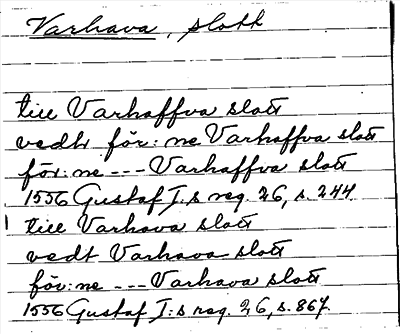 Varhava, slott
till Varhaffva slott
vedh för:ne Varhaffva slott
för:ne --- Varhaffva slott
1556 Gustaf I:s reg. 26, s. 244.
till Varhava slott
vedt Varhava slott
för:ne --- Varhava slott
1556 Gustaf I:s reg. 26, s. 867.